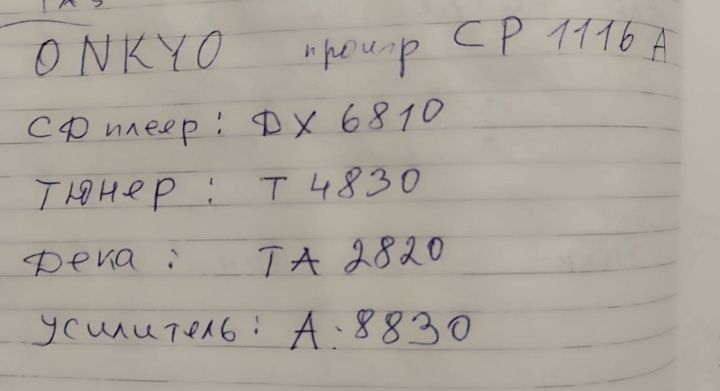 ONKYO проигр CP 1116 A
СД плеяр: ДХ 6810
Тюнер: Т 4830
Дека: ТА 2820
Усилитель: А. 8830